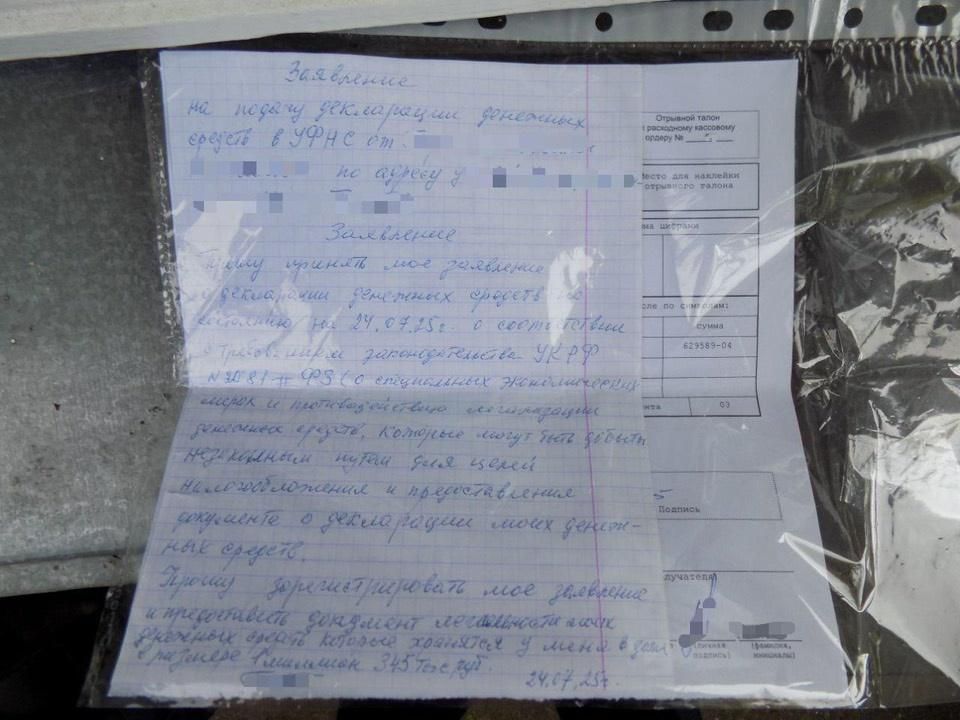 Заявление
на подачу декларации денежных
средств в УФНС от
по адресу у
Заявление
Прошу принять мое заявление
о декларации денежных средств по
состоянию на 24.07.25г. о соответствии
с требованием законодательства УКРФ
ФЗ (о специальных экономических
мерах и противодействию легализации
денежных средств, которые могут быть добыты
незаконным путем для целей
налогообложения и предоставления
документа о декларации моих денеж-
ных средств.
Прошу зарегистрировать мое заявление
и предоставить документ легальности моих
денежных средств которые хранятся у меня в доме
в размере 1 миллион 345 тыс руб.
24.07.25г.
Отрывной талон
расходному кассовому
ордеру №
Место для наклейки
отрывного талона
ма цифрами
сле по символам:
сумма
629589-04
нта 03
5
Подпись
лучателя
(личная подпись) (фамилия, инициалы)